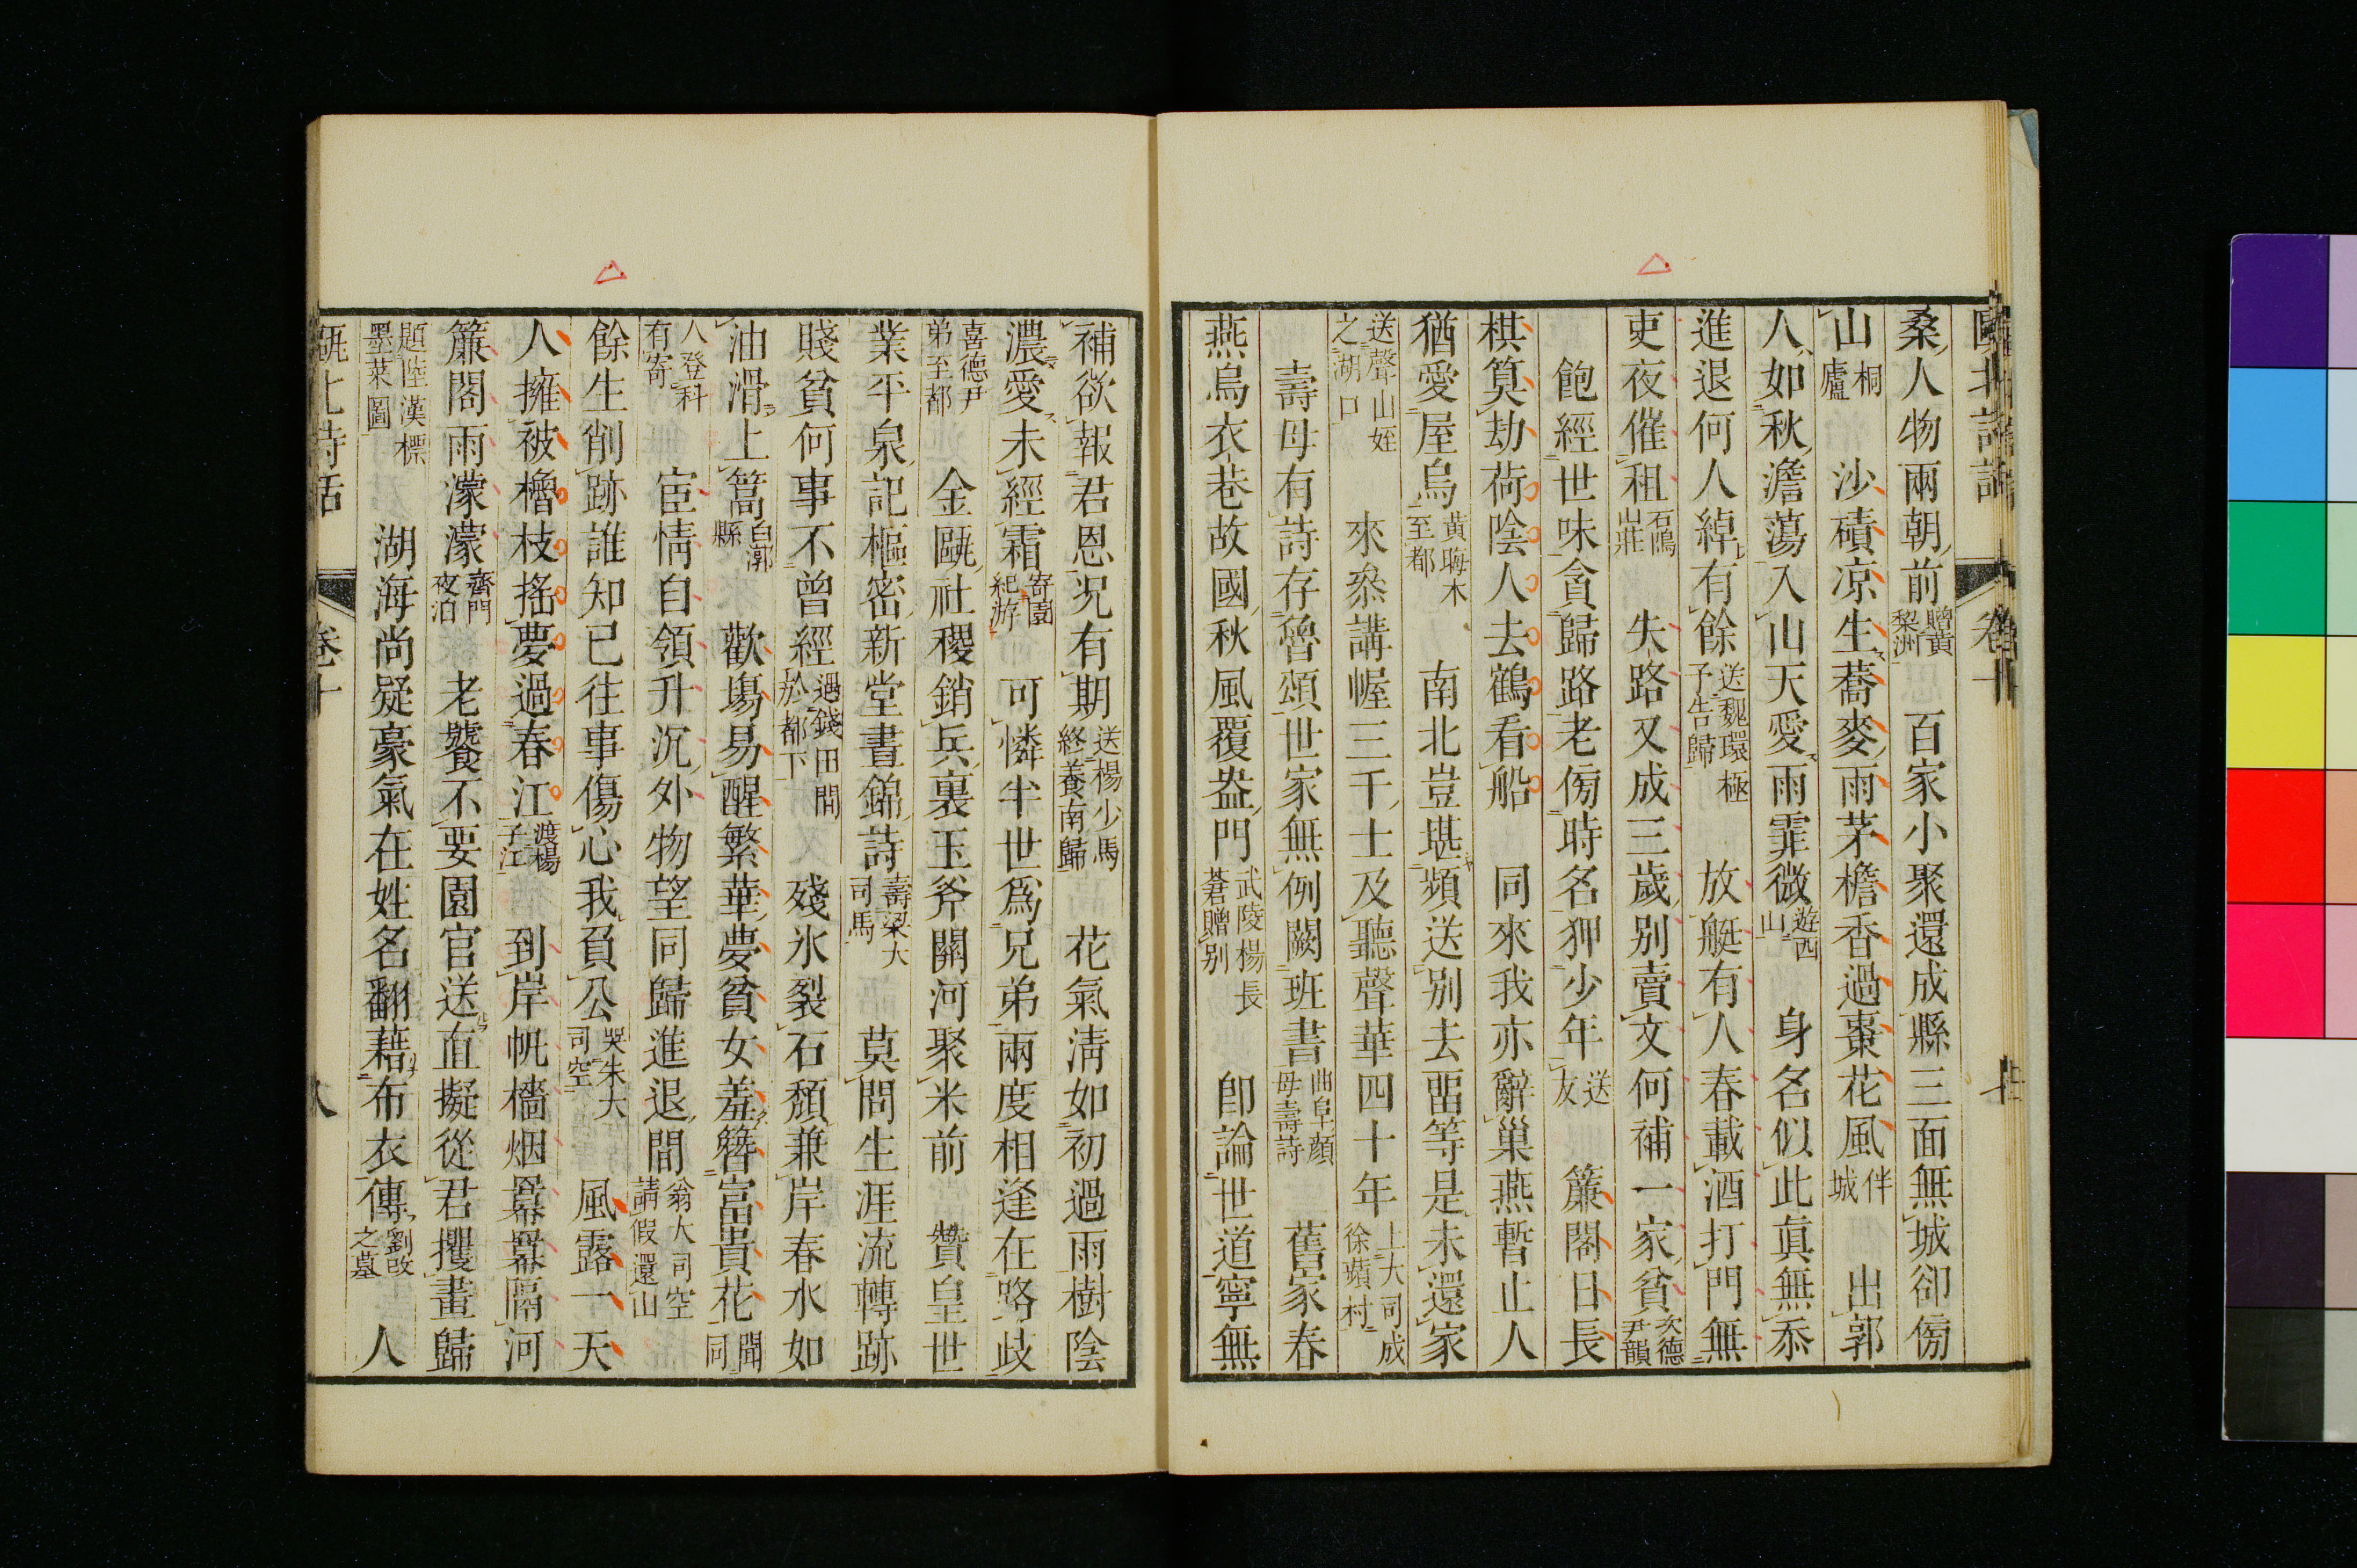 甌北詩話 卷十
桑人物兩朝前贈黄黎洲 百家小聚還成縣三面無城卻傍
山桐廬 沙磧凉生蕎麥雨茅檐香過棗花風伴城 出郭
人如秋澹蕩入山天愛雨霏微遊西山 身名似此真無忝
進退何人綽有餘送魏環極予告歸 放艇有人春載酒打門無
吏夜催租石鳨山莊 失路又成三歲别賣文何補一家貧次德尹韻
飽經世味貪歸路老傍時名狎少年送友 簾閣日長
棋算劫荷陰人去鶴看船 同來我亦辭巢燕暫止人
猶愛屋烏黄晦木至都 南北豈堪頻送别去畱等是未還家
送聲山姪之湖口 來叅講幄三千士及聽聲華四十年上大司成徐蘋村
壽母有詩存魯頌世家無例闕班書曲阜顔母壽詩 舊家春
燕烏衣巷故國秋風覆盎門武陵楊長蒼贈别 卽論世道寧無
補欲報君恩况有期送楊少馬終養南歸 花氣淸如初過雨樹陰
濃愛未經霜寄園紀游 可憐半世爲兄弟兩度相逢在路歧
喜德尹弟至都 金甌社稷銷兵裏玉斧關河聚米前 贊皇世
業平泉記樞密新堂晝錦詩壽梁大司馬 莫問生涯流轉跡
賤貧何事不曾經過錢田間於都下 殘氷裂石頽兼岸春水如
油滑上篙白郭縣 歡塲易醒繁華夢貧女羞簪富貴花聞同
人登科有寄 宦情自領升沉外物望同歸進退間翁大司空請假還山
餘生削跡誰知已往事傷心我負公哭朱大司空 風露一天
人擁被櫓枝搖夢過春江渡楊子江 到岸帆檣烟羃羃隔河
簾閣雨濛濛齊門夜泊 老饕不要園官送直擬從君攫畫歸
題陸漢標墨菜圖 湖海尚疑豪氣在姓名翻藉布衣傳劉改之墓 人
甌北詩話 卷十